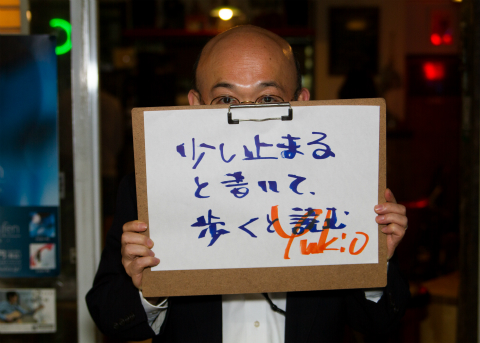 少し止まる
と書いて、
歩くと読む
Yukio